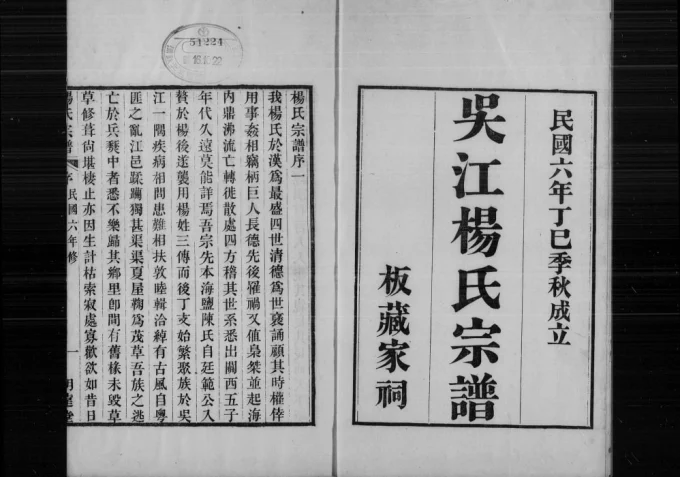 民國六年丁巳季秋成立
吳江楊氏宗譜
板藏家祠
51224
楊氏宗譜序一
我楊氏於漢為最盛四世清德為世褒誦顧其時權倖
用事姦相竊柄巨人長德先後罹禍又值梟桀並起海
內鼎沸流亡轉徙散處四方稽其世系悉出關西五子
年代久遠莫能詳焉吾宗先本海鹽陳氏自廷範公入
贅於楊後遂襲用楊姓三傳而後丁支始繁聚族於吳
江一隅疾病相問患難相扶敦睦輯洽綽有古風自粵
匪之亂江邑蹂躪獨甚渠渠夏屋鞠為茂草吾族之逃
亡於兵燹中者悉不樂歸其鄉里卽間有舊椽未毀草
草修葺尚堪棲止亦因生計枯索寂處寡歡欲如昔日
楊氏宗譜 序 民國六年修 一